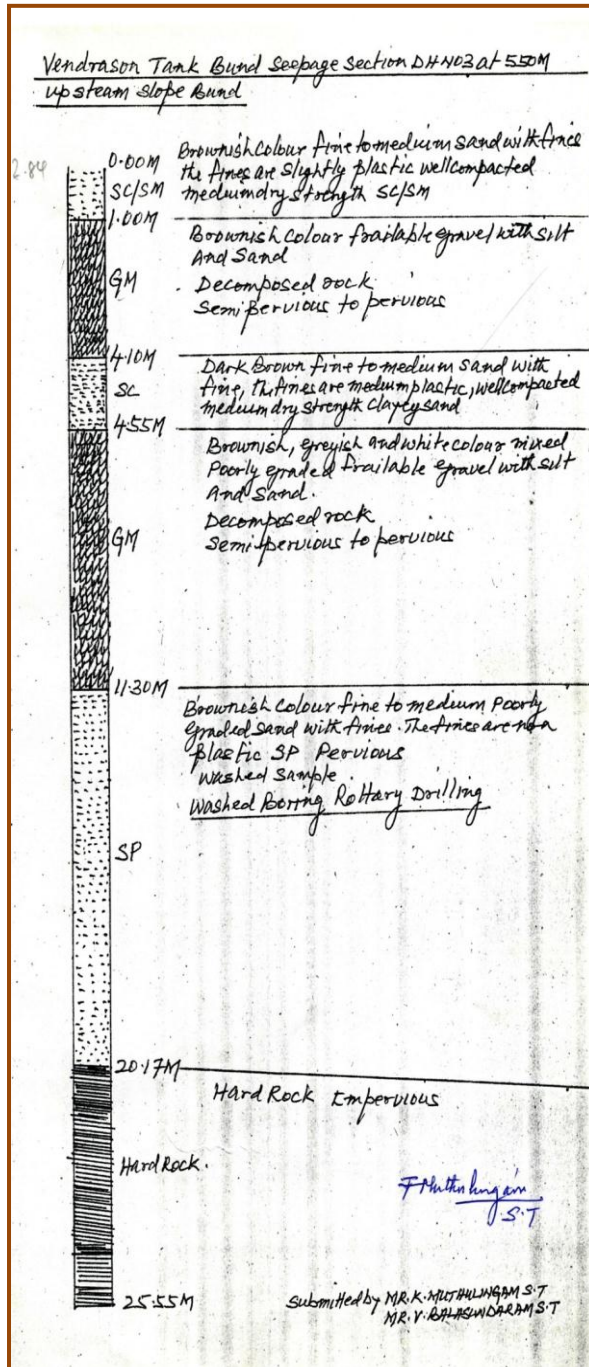 Vendrason Tank Bund Seepage Section DH NO3 at 550M
upsteam slope Bund
2.84
0.00M
SC/SM
Brownish Colour fine to medium Sand with fines
the fines are slightly plastic wellcompacted
mediumdry strength SC/SM
1.00M
Brownish Colour frailable gravel with silt
And Sand
GM
Decomposed rock
Semi pervious to pervious
4.10M
SC
Dark Brown fine to medium sand with
fine, the fines are mediumplastic, wellcompacted
mediumdry strength Clayeysand
4.55M
Brownish, greyish and white colour mixed
Poorly graded frailable gravel with silt
And Sand.
GM
Decomposed rock
Semi pervious to pervious
11.30M
Brownish Colour fine to medium Poorly
graded Sand with fines. The fines are non
plastic SP Pervious
Washed Sample.
Washed Boring Rottary Drilling
SP
20.17M
Hard Rock Empervious
Hard Rock.
S.T
25.55M
Submitted by MR.K.MUTHULINGAM S.T
MR.V.BALASUNDARAM S.T